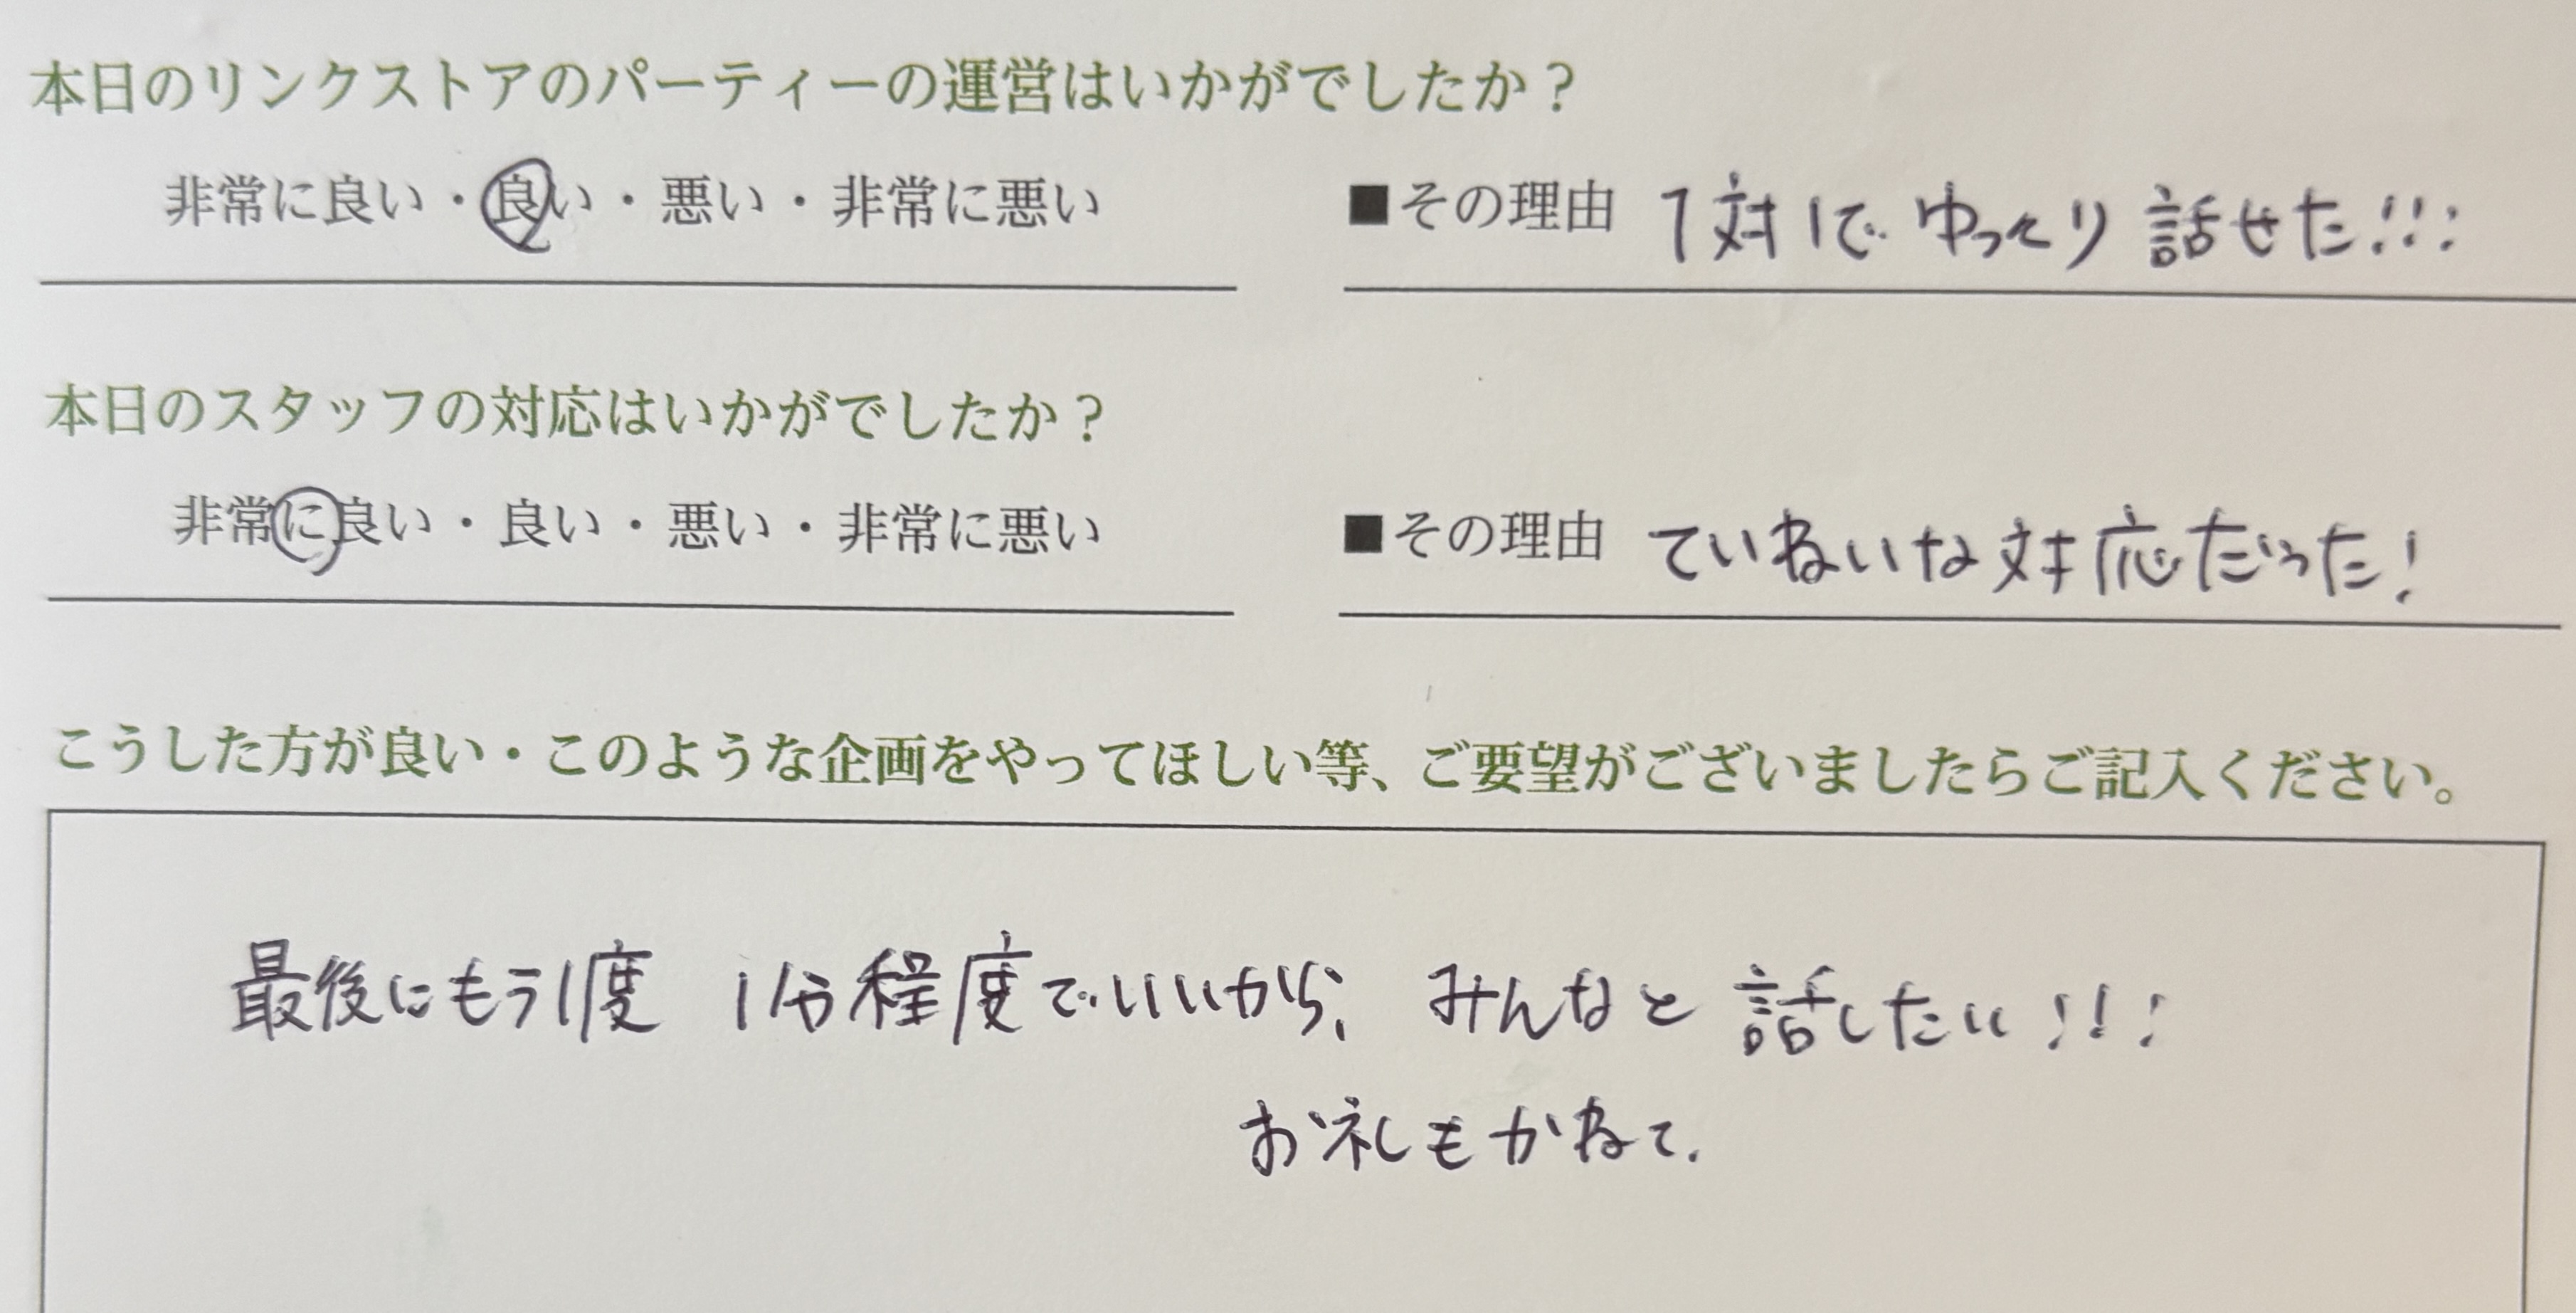 本日のリンクストアのパーティーの運営はいかがでしたか？
非常に良い・良い・悪い・非常に悪い ■その理由 1対1で ゆっくり 話せた!!!
本日のスタッフの対応はいかがでしたか？
非常に良い・良い・悪い・非常に悪い ■その理由 ていねいな対応だった!
こうした方が良い・このような企画をやってほしい等、ご要望がございましたらご記入ください。
最後にもう1度 1分程度でいいから、みんなと話したい!!!
お礼もかねて.